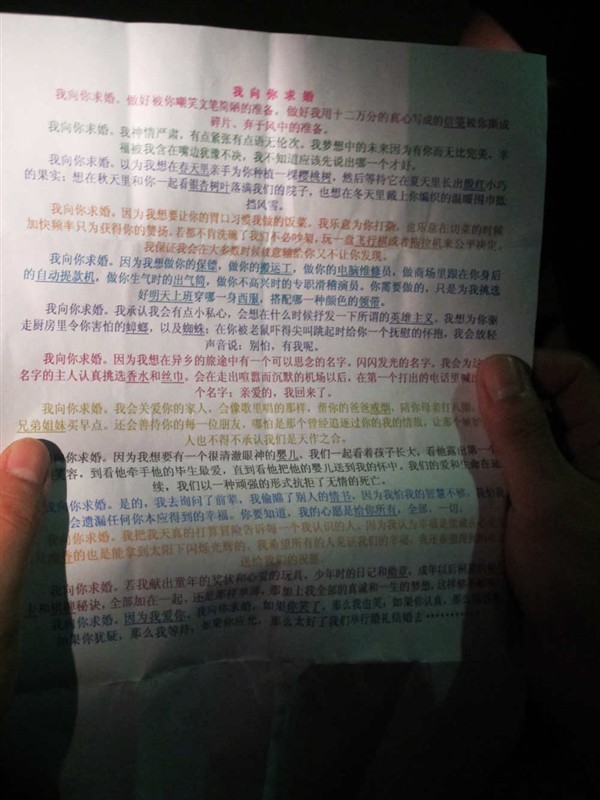 我向你求婚
我向你求婚。做好被你嘲笑文笔简陋的准备。做好我用十二万分的真心写成的信笺被你撕成
碎片、弃于风中的准备。
我向你求婚。我神情严肃，有点紧张有点语无伦次。我梦想中的未来因为有你而无比完美。幸
福被我含在嘴边犹豫不决，我不知道应该先说出哪一个才好。
我向你求婚。以为我想在春天里亲手为你种植一棵樱桃树，然后等待它在夏天里长出殷红小巧
的果实；想在秋天里和你一起看银杏树叶落满我们的院子，也想在冬天里戴上你编织的温暖围巾抵
挡风雪。
我向你求婚。因为我想要让你的胃口习惯我做的饭菜。我乐意为你打杂，也乐意在切菜的时候
加快频率只为获得你的赞扬。若都不肯洗碗了我们不必吵架，玩一盘飞行棋或者拖拉机来公平决定。
我保证我会在大多数时候故意输给你又不让你发现。
我向你求婚。因为我想做你的保镖，做你的搬运工，做你的电脑维修员，做商场里跟在你身后
的自动提款机，做你生气时的出气筒，做你不高兴时的专职滑稽演员。你需要做的，只是为我挑选
好明天上班穿哪一身西服，搭配哪一种颜色的领带。
我向你求婚。我承认我会有点小私心，会想在什么时候抒发一下所谓的英雄主义。我想为你驱
走厨房里令你害怕的蟑螂，以及蜘蛛；在你被老鼠吓得尖叫跳起时给你一个抚慰的怀抱，我会放轻
声音说：别怕，有我呢。
我向你求婚。因为我想在异乡的旅途中有一个可以思念的名字。闪闪发光的名字。我会为这
名字的主人认真挑选香水和丝巾。会在走出喧嚣而沉默的机场以后，在第一个打出的电话里喊出
个名字：亲爱的，我回来了。
我向你求婚。我会关爱你的家人，会像歌里唱的那样，帮你的爸爸戒烟，陪你母亲打八
兄弟姐妹买早点。还会善待你的每一位朋友，哪怕是那个曾经追逐过你的我的情敌，让那个
人也不得不承认我们是天作之合。
我向你求婚。因为我想要有一个很清澈眼神的婴儿，我们一起看着孩子长大，看他露出第一个
笑容，到看他牵手他的毕生最爱，直到看他把他的婴儿送到我的怀中，我们的爱和生命在延
续，我们以一种顽强的形式抗拒了无情的死亡。
我向你求婚。是的，我去询问了前辈，我偷瞄了别人的情书，因为我怕我的智慧不够，我怕我
会遗漏任何你本应得到的幸福。你要知道，我的心愿是给你所有，全部，一切。
我向你求婚。我把我天真的打算冒险告诉每一个我认识的人。因为我认为幸福是能藏在心
的也是能拿到太阳下闪烁光辉的，我希望所有的人见证我们的幸福，我还希望得到
送给我们的祝愿。
我向你求婚。若我献出童年的奖状和心爱的玩具，少年时的日记和勋章，成年以后
秘诀，全部加在一起，还是那样单薄，那加上我全部的真诚和一生的梦想，这样
我向你求婚，因为我爱你，我向你求婚，如果你笑了，那么我也笑，如果你认真，那么
如果你犹疑，那么我等待，如果你应允，那么太好了我们举行婚礼结婚去…………